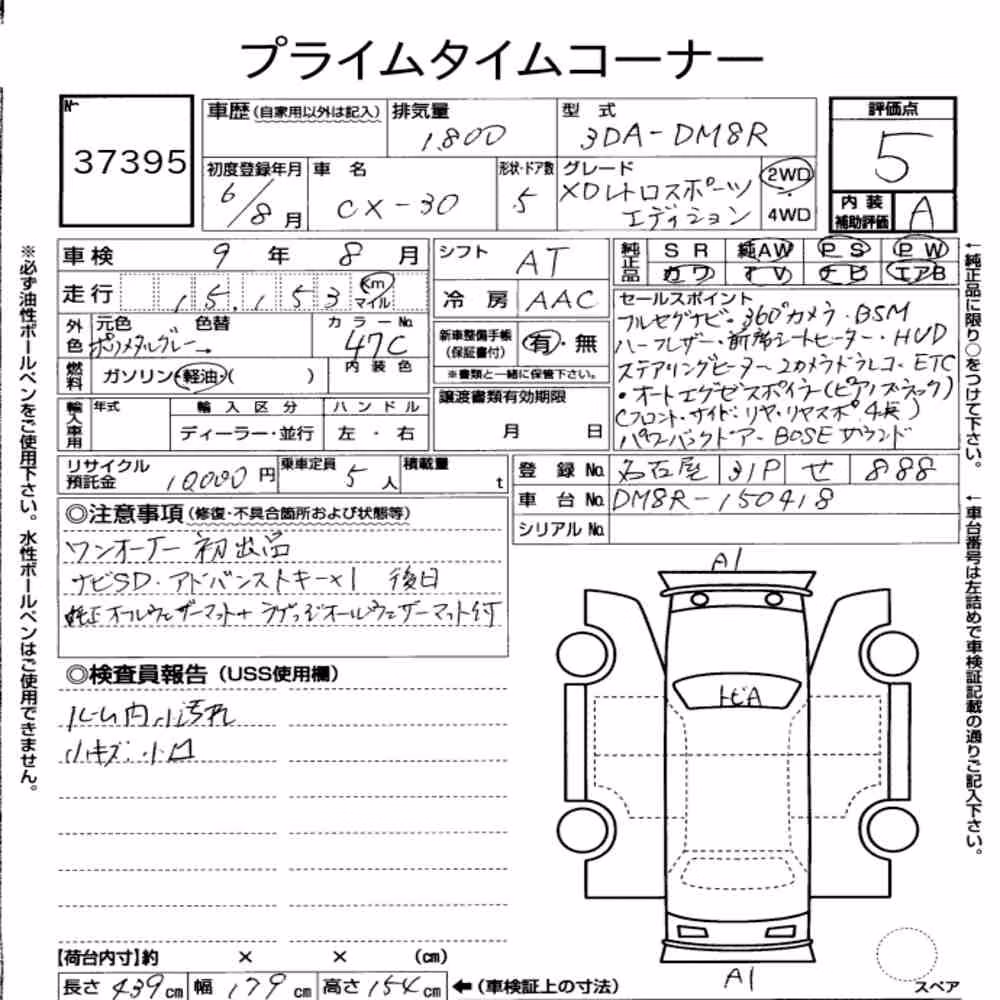 プライムタイムコーナー
№
37395
車歴(自家用以外は記入)
排気量
1.800
型式
3DA-DM8R
評価点
5
初度登録年月
6/8月
車名
CX-30
形状・ドア数
5
グレード
XDレトロスポーツ
エディション
2WD
・
4WD
内装
補助評価
A
車検 9年 8月
シフト
AT
純正品
SR 純AW PS PW
カワ TV ナビ エアB
走行 15,153 Km
マイル
冷房
AAC
セールスポイント
フルセグナビ・360°カメラ・BSM
ハーフレザー・前席シートヒーター・HUD
ステアリングヒーター・2カメラドラレコ・ETC
・オートエグゼスポイラ(ピアノブラック)
(フロント・サイド・リヤ・リヤスポ4点)
パワーバックドア・BOSEサウンド
外色
元色 色替
ポリメタルグレー→
カラーNo.
47C
内装色
新車整備手帳
(保証書付)
有・無
※書類と一緒に保管下さい。
燃料
ガソリン・軽油・( )
譲渡書類有効期限
月 日
輸入車用
年式
輸入区分
ハンドル
ディーラー・並行
左・右
リサイクル
預託金
10000円
乗車定員
5人
積載量
t
登録No. 名古屋 31P せ 888
車台No. DM8R-150418
シリアルNo.
◎注意事項(修復・不具合箇所および状態等)
ワンオーナー 初出品
ナビSD・アドバンストキー×1 後日
純正オールウェザーマット+ラゲッジオールウェザーマット付
◎検査員報告(USS使用欄)
ルーム内小汚れ
小キズ・小凹
A1
トビA
A1
スペア
【荷台内寸】約 × × (cm)
長さ 439cm 幅 179cm 高さ 154cm ←(車検証上の寸法)
※必ず油性ボールペンをご使用下さい。水性ボールペンはご使用できません。
←純正品に限り○をつけて下さい。
←車台番号は左詰めで車検証記載の通りご記入下さい。